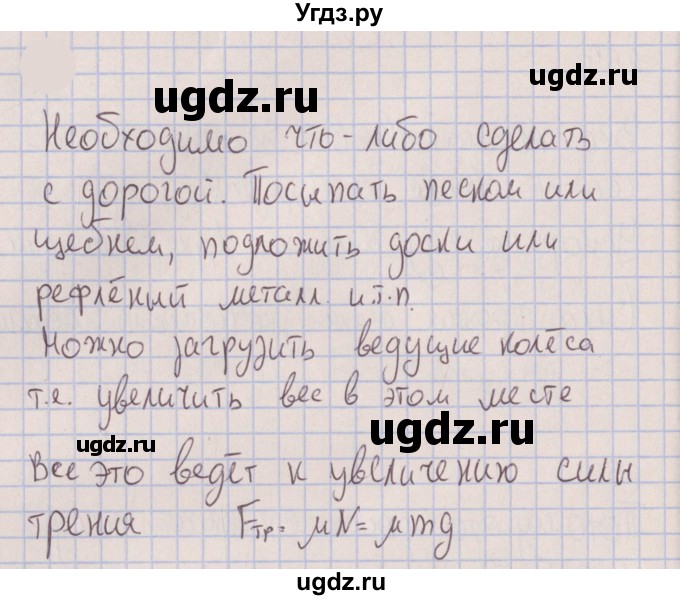 Угдз.ру
ugdz.ru
ugdz.ru
Необходимо что-либо сделать
с дорогой. Посыпать песком или
щебнем, подложить доски или
рефлёный металл. и.т.п.
Можно загрузить ведущие колёса
т.е. увеличить вес в этом месте
ugdz.ru
ugdz.ru
Все это ведёт к увеличению силы
трения Fтр = μN = μmg
ugdz.ru